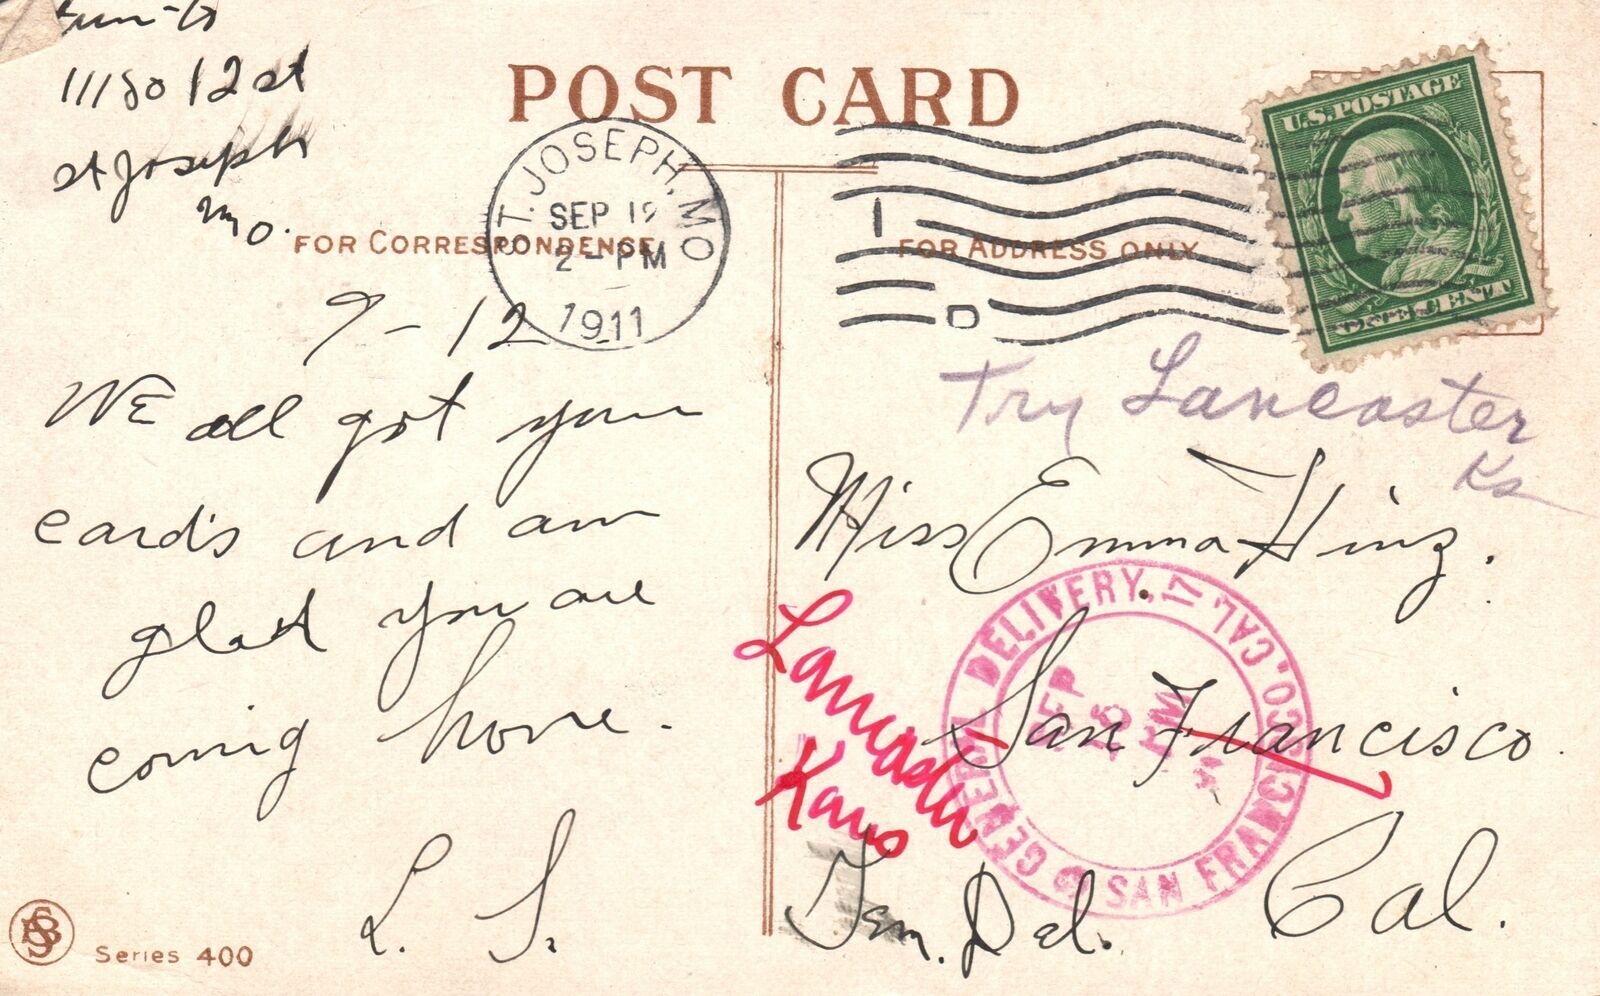 1118 So 12 st
st Joseph
Mo.
POST CARD
ST. JOSEPH, MO
SEP 12
2 - PM
1911
U.S. POSTAGE
ONE CENT
FOR CORRESPONDENCE
FOR ADDRESS ONLY
9-12
We all got your
card's and am
glad you are
comig home.
L. S.
Try Lancaster
Ks
Miss Emma Hinz.
San Francisco.
Gen. Del. Cal.
Lancaster
Kans
GENERAL DELIVERY, 17
SAN FRANCISCO, CAL.
SEP 16
Series 400